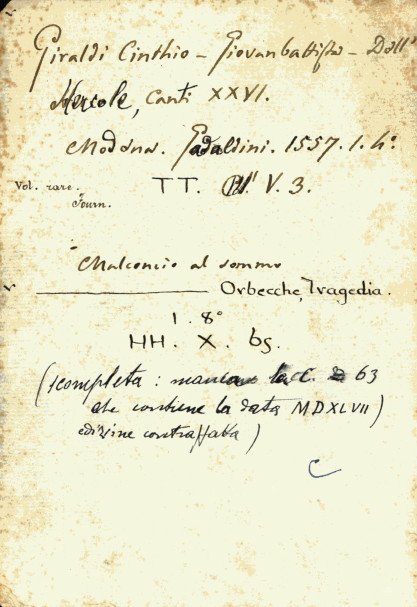 Giraldi Cinthio - Giovanbattista - Dell'
Hercole, Canti XXVI.
Modona. Gadaldini. 1557. 1. 4°
Vol. rare.
TT. V. 3.
Malconcio al sommo
Orbecche, Tragedia.
1. 8°
HH. X. 65.
(scompleta: manca la C. 63
che contiene la data MDXLVII)
edizione contraffatta)
C